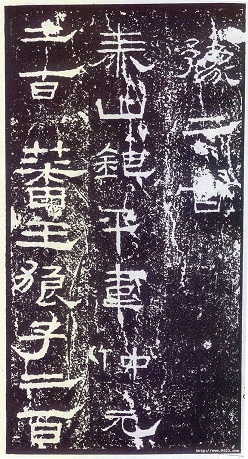 豫二百
泰山鉅平韋仲元
二百 蕃王狼子二百
http://www.9610.com